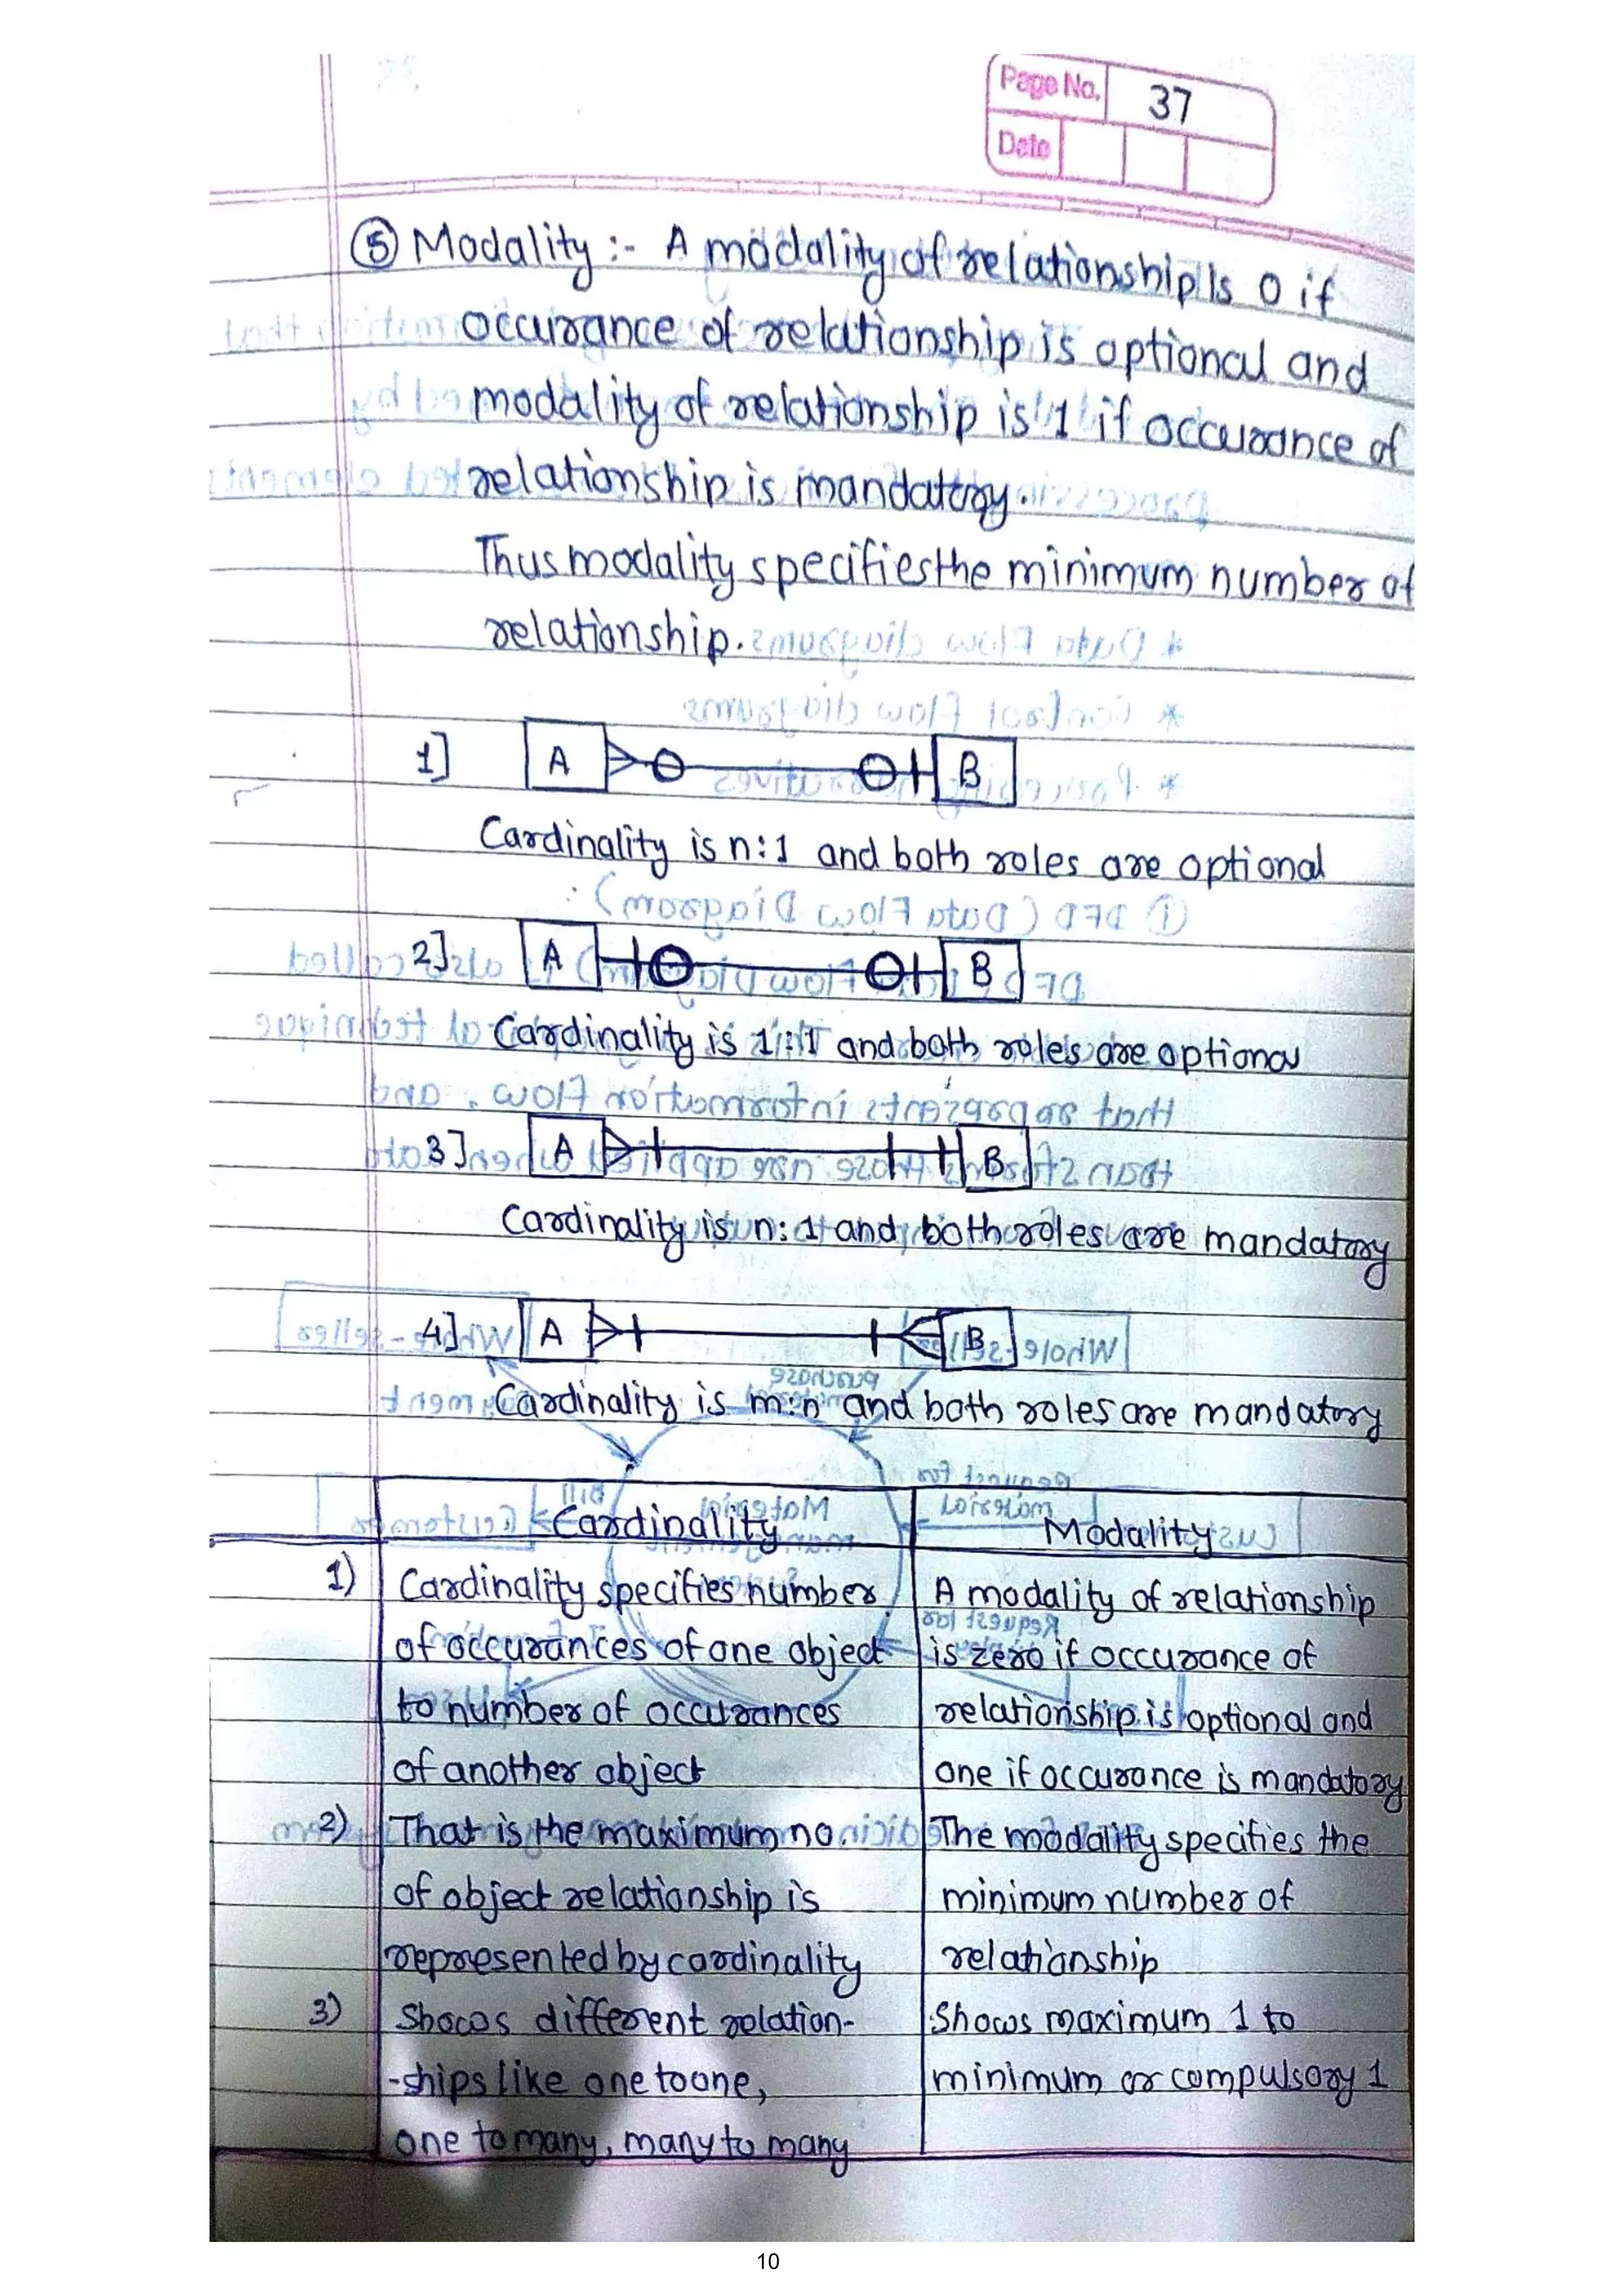 Page No. 37
Date
⑤ Modality :- A modality of relationship Is 0 if
occurance of relationship is optional and
modality of relationship is 1 if occurance of
relationship is mandatory.
Thus modality specifies the minimum number of
relationship.
1] A B
Cardinality is n:1 and both roles are optional
2] A B
Cardinality is 1:1 and both roles are optional
3] A B
Cardinality is n:1 and both roles are mandatory
4] A B
Cardinality is m:n and both roles are mandatory
Cardinality Modality
1) Cardinality specifies number A modality of relationship
of occurances of one object is zero if occurance of
to number of occurances relationship is optional and
of another object one if occurance is mandatory
2) That is the maximum no. The modality specifies the
of object relationship is minimum number of
represented by cardinality relationship
3) Shows different relation- Shows maximum 1 to
-ships like one to one, minimum or compulsory 1
one to many, many to many
10